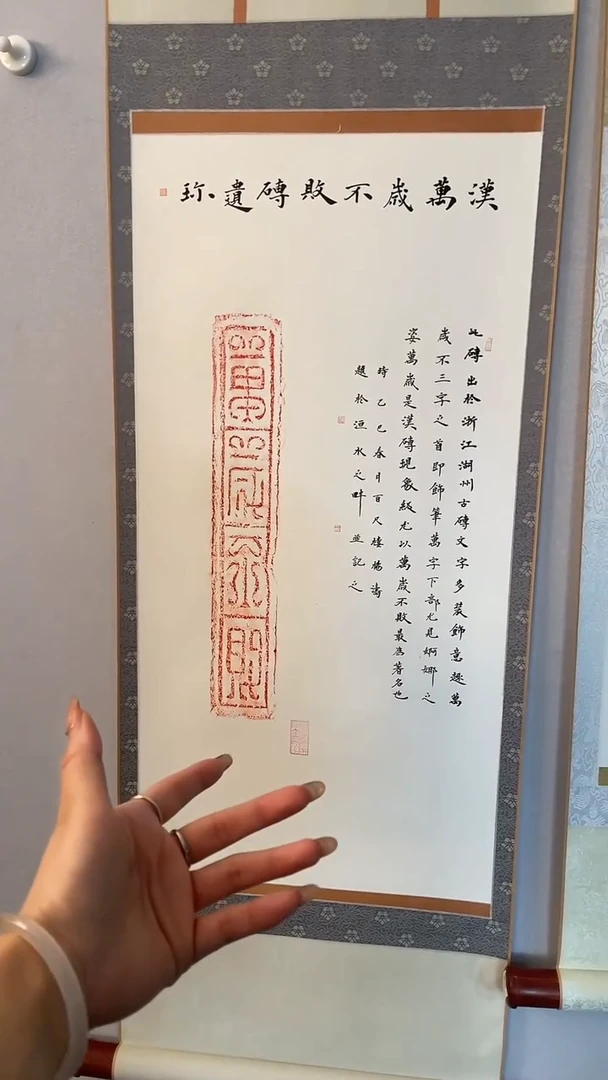 漢萬歲不敗磚遺珍
萬歲不敗
此磚出於浙江湖州古磚文字多裝飾意趣萬
歲不三字之首即飾筆萬字下部尤見婀娜之
姿萬歲是漢磚現象級尤以萬歲不敗最為著名也
時乙巳春月百尺樓楊濤
題於洹水之畔並記之